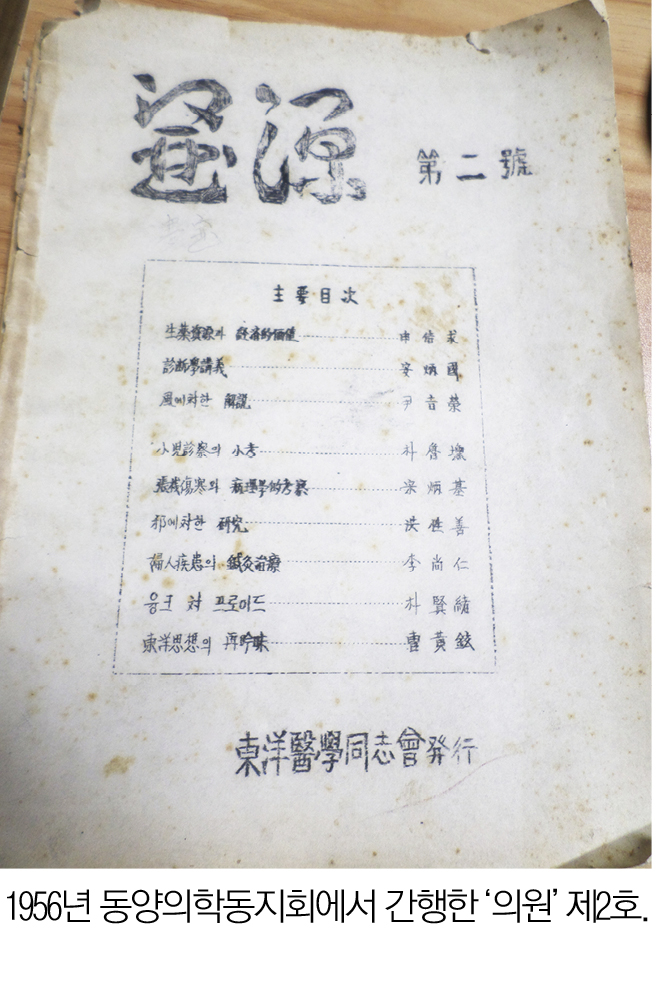 醫源 第二號
主要目次
生藥資源과 經濟的價値 申佶求
診斷學講義 安炳國
風에 対한 解説 尹吉榮
小兒診察의 小考 朴魯壞
張機傷寒의 病理學的考察 宋炳基
邪에 対한 研究 洪性善
婦人疾患의 鍼灸治療 李尚仁
융크 対 프로이드 朴賢緖
東洋思想의 再吟味 黃鉉
東洋醫學同志會発行
1956년 동양의학동지회에서 간행한 ‘의원’ 제2호.